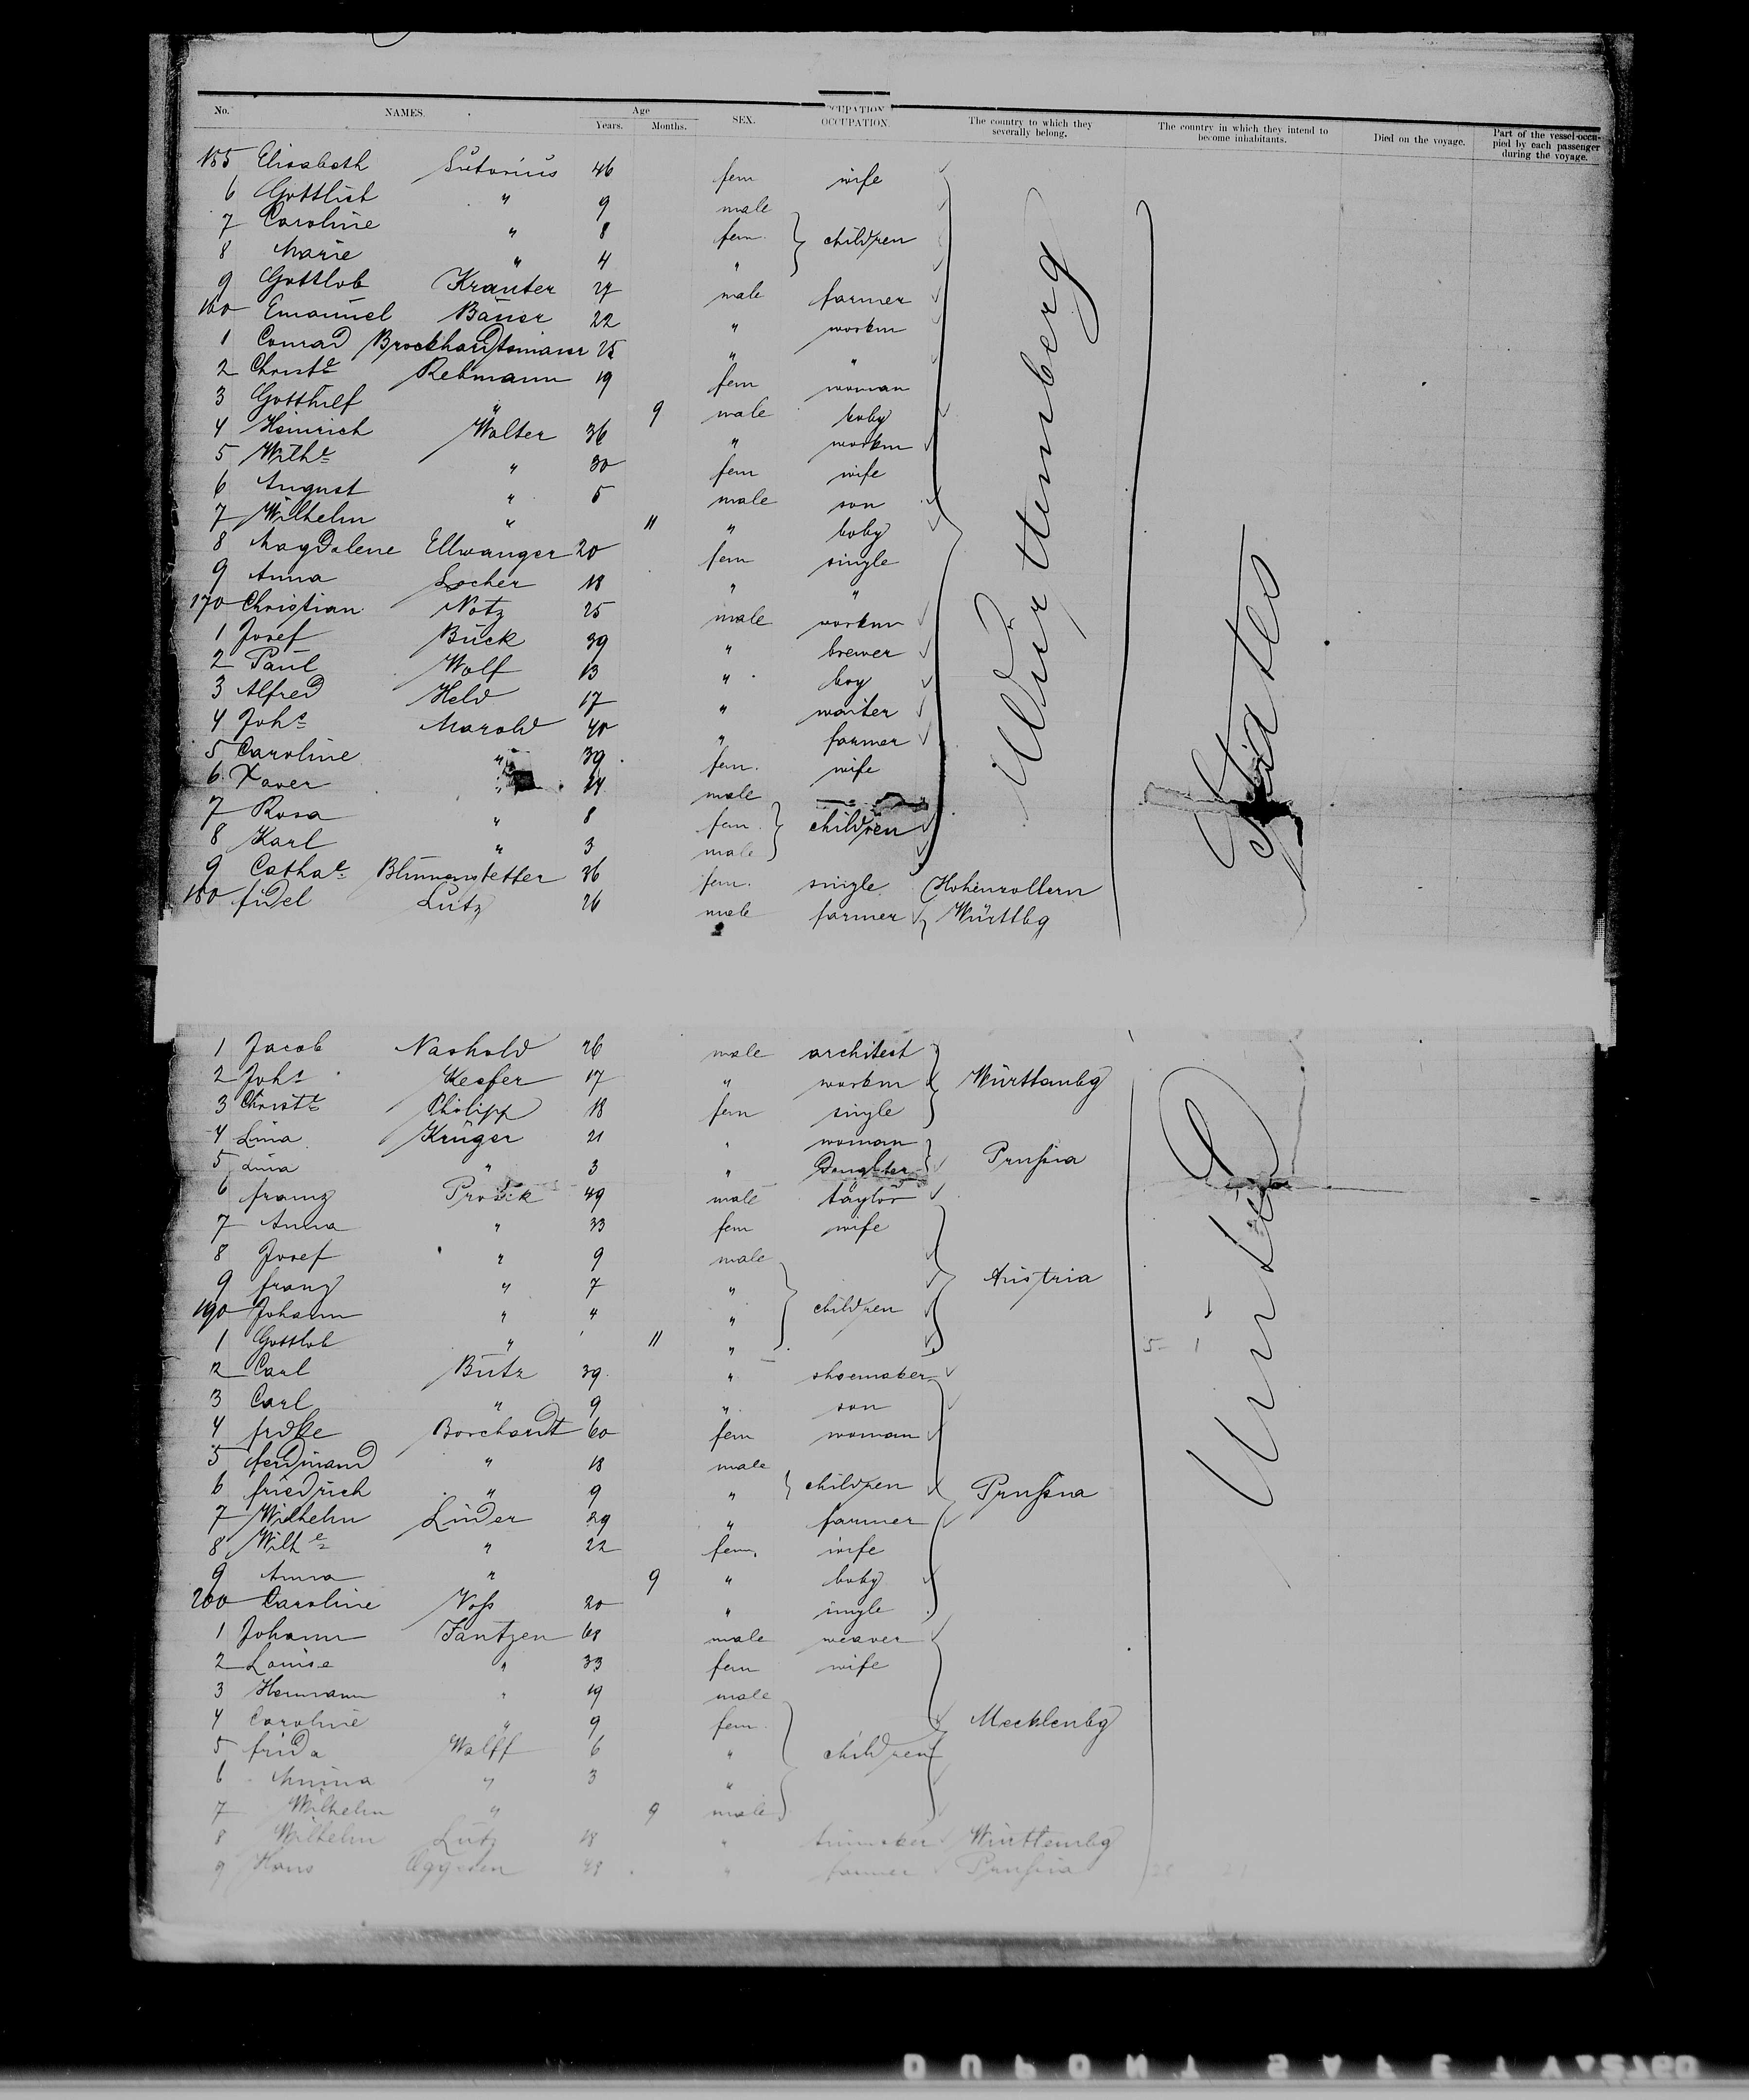 No. NAMES. Age SEX. OCCUPATION. The country to which they severally belong. The country in which they intend to become inhabitants. Died on the voyage. Part of the vessel occupied by each passenger during the voyage.
Years. Months.
155 Elisabeth Sutorius 46 fem wife
6 Gottlieb " 9 male
7 Caroline " 8 fem. children
8 Marie " 4 "
9 Gottlob Kranter 27 male farmer
160 Emanuel Bauer 22 " workm
1 Conrad 25 " "
2 Christe Rebmann 19 fem woman
3 Gotthilf " 9 male baby
4 Heinrich Walter 36 " workm
5 Wilhe " 30 fem wife
6 August " 5 male son
7 Wilhelm " 11 " baby
8 Magdalene Ellwanger 20 fem single
9 Anna Locher 18 " "
170 Christian Notz 25 male workm
1 Josef Buck 39 " brewer
2 Paul Wolf 13 " boy
3 Alfred Held 17 " waiter
4 Johs Marold 40 " farmer
5 Caroline " 39 fem. wife
6 Xaver " 24 male
7 Rosa " 8 fem. children
8 Karl " 3 male
Württemberg
9 Cathae Blumenstetter 36 fem. single Hohenzollern
180 Fidel Lutz 26 male farmer Württbg
States
1 Jacob Nashold 26 male architect
2 Johs Keefer 17 " workm Württembg
3 Christe Philipp 18 fem single
4 Lina Krüger 21 " woman
5 Lina " 3 " Daughter Prussia
6 Franz Prosek 49 male taylor
7 Anna " 33 fem wife
8 Josef " 9 male
9 Franz " 7 " Austria
190 Johann " 4 " children
1 Gottlob " 11 " 5 1
2 Carl Butz 39 " shoemaker
3 Carl " 9 " son
4 Frdke Borchardt 60 fem woman
5 Ferdinand " 18 male
6 Friedrich " 9 " children Prussia
7 Wilhelm Linder 29 " farmer
8 Wilhe " 22 fem. wife
9 Anna " 9 " baby
200 Caroline Voss 20 " single
1 Johann Jantzen 68 male weaver
2 Louise " 33 fem wife
3 Hermann " 19 male
4 Caroline " 9 fem. Mecklenbg
5 Frida Wolff 6 " children
6 Minna " 3 "
7 Wilhelm " 9 male
8 Wilhelm Lutz 18 " Württembg
9 Hans 48 " farmer Prussia
United
DUPONT SAFETY